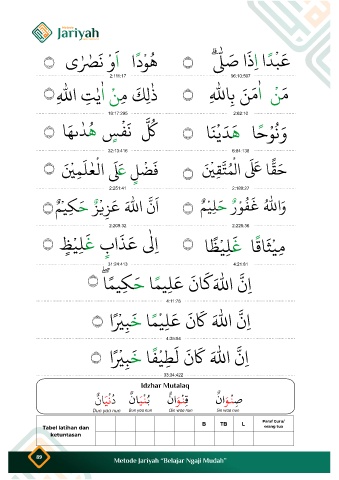 Metode
Jariyah
عَبْدًا اِذَا صَلّٰىۗ ۝ هُوْدًا اَوْ نَصٰرٰى ۝
96:10:597 2:111:17
مَنْ اٰمَنَ بِاللّٰهِ ۝ ذٰلِكَ مِنْ اٰيٰتِ اللّٰهِ ۝
2:62:10 18:17:295
وَنُوْحًا هَدَيْنَا ۝ كُلَّ نَفْسٍ هُدٰىهَا ۝
6:84:138 32:13:416
حَقًّا عَلَى الْمُتَّقِيْنَ ۝ فَضْلٍ عَلَى الْعٰلَمِيْنَ ۝
2:180:27 2:251:41
وَاللّٰهُ غَفُوْرٌ حَلِيْمٌ ۝ اَنَّ اللّٰهَ عَزِيْزٌ حَكِيْمٌ ۝
2:225:36 2:209:32
مِيْثَاقًا غَلِيْظًا ۝ اِلٰى عَذَابٍ غَلِيْظٍ ۝
4:21:81 31:24:413
اِنَّ اللّٰهَ كَانَ عَلِيْمًا حَكِيْمًا ۝
4:11:78
اِنَّ اللّٰهَ كَانَ عَلِيْمًا خَبِيْرًا ۝
4:35:84
اِنَّ اللّٰهَ كَانَ لَطِيْفًا خَبِيْرًا ۝
33:34:422
Idzhar Mutalaq
صِنْوَانٌ قِنْوَانٌ بُنْيَانٌ دُنْيَانٌ
Dun yaa nun Bun yaa nun Qin waa nun Sin waa nun
Tabel latihan dan ketuntasan B TB L Paraf Guru/ orang tua
89 Metode Jariyah "Belajar Ngaji Mudah"